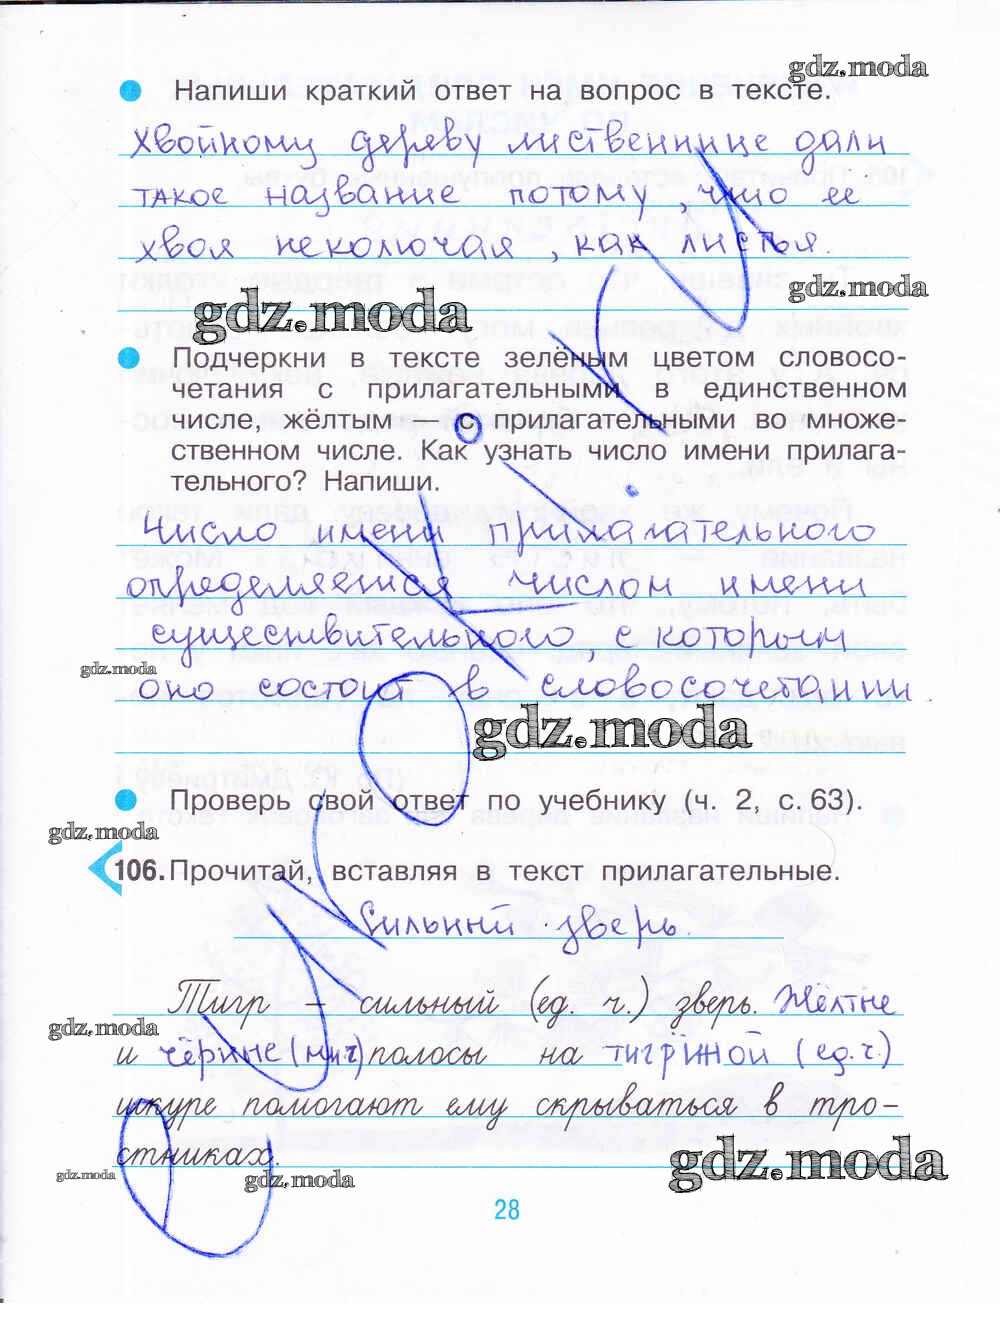 gdz.moda
Напиши краткий ответ на вопрос в тексте.
Хвойному дереву лиственнице дали
такое название потому, что ее
хвоя неколючая, как листья.
gdz.moda
gdz.moda
Подчеркни в тексте зелёным цветом словосо-
четания с прилагательными в единственном
числе, жёлтым – с прилагательными во множе-
ственном числе. Как узнать число имени прилага-
тельного? Напиши.
Число имени прилагательного
определяется числом имени
существительного, с которым
gdz.moda
оно состоит в словосочетании
gdz.moda
Проверь свой ответ по учебнику (ч. 2, с. 63).
gdz.moda
106. Прочитай, вставляя в текст прилагательные.
Сильный зверь.
Тигр – сильный (ед. ч.) зверь. Жёлтые
gdz.moda
и чёрные (мн.ч) полосы на тигриной (ед.ч.)
шкуре помогают ему скрываться в тро-
стниках.
gdz.moda
gdz.moda
gdz.moda
28